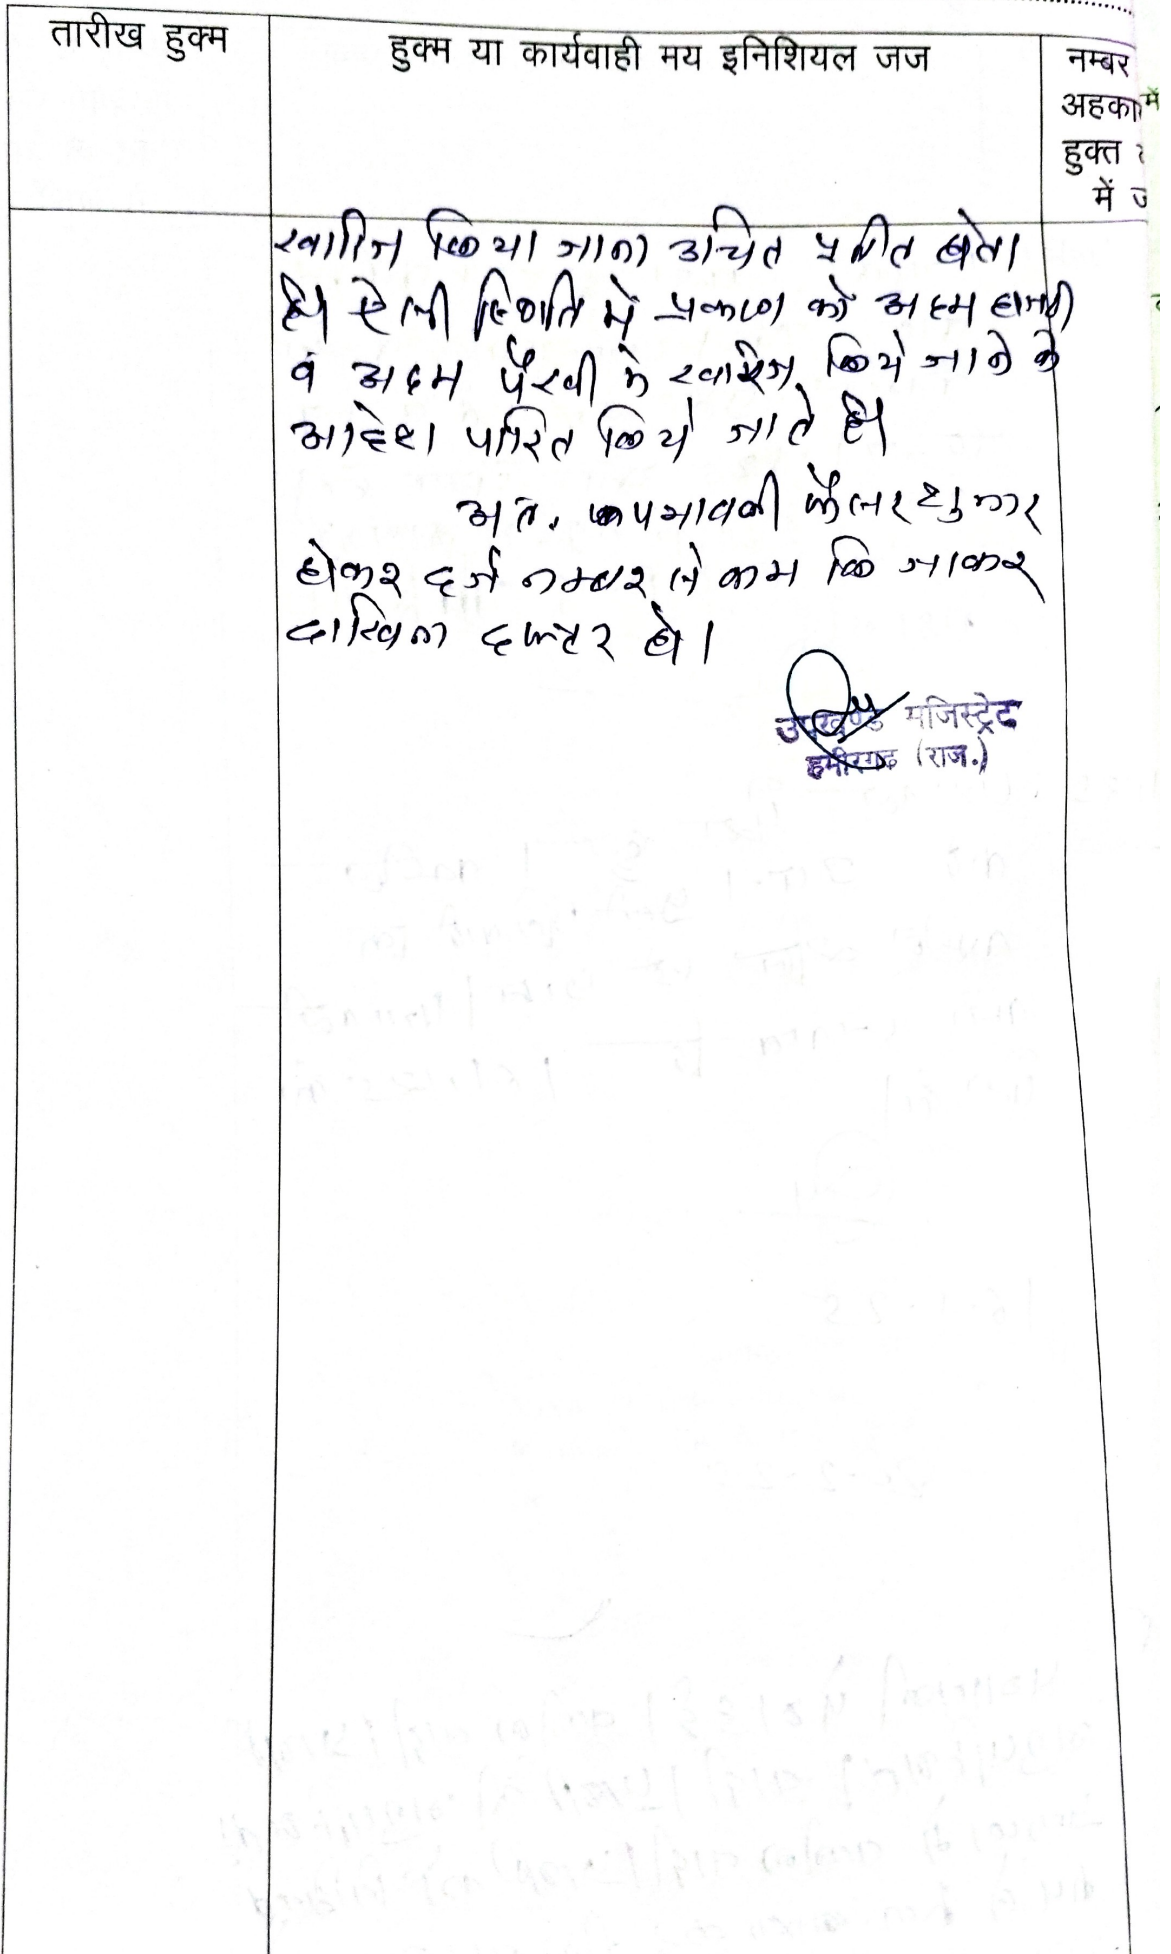 तारीख हुक्म
हुक्म या कार्यवाही मय इनिशियल जज
नम्बर
अहका
हुक्त
में
खारिज किया जाना उचित प्रतीत होता
है। ऐसी स्थिति में प्रकरण को अदम हाजरी
व अदम पैरवी मे खारिज किये जाने के
आदेश पारित किये जाते है।
अत. पत्रावली फैसल शुमार
होकर दर्ज नम्बर से कम कि जाकर
दाखिल दफ्तर हो।
उपखण्ड मजिस्ट्रेट
हमीरगढ़ (राज.)